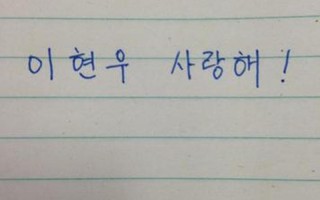 이현우 사랑해!